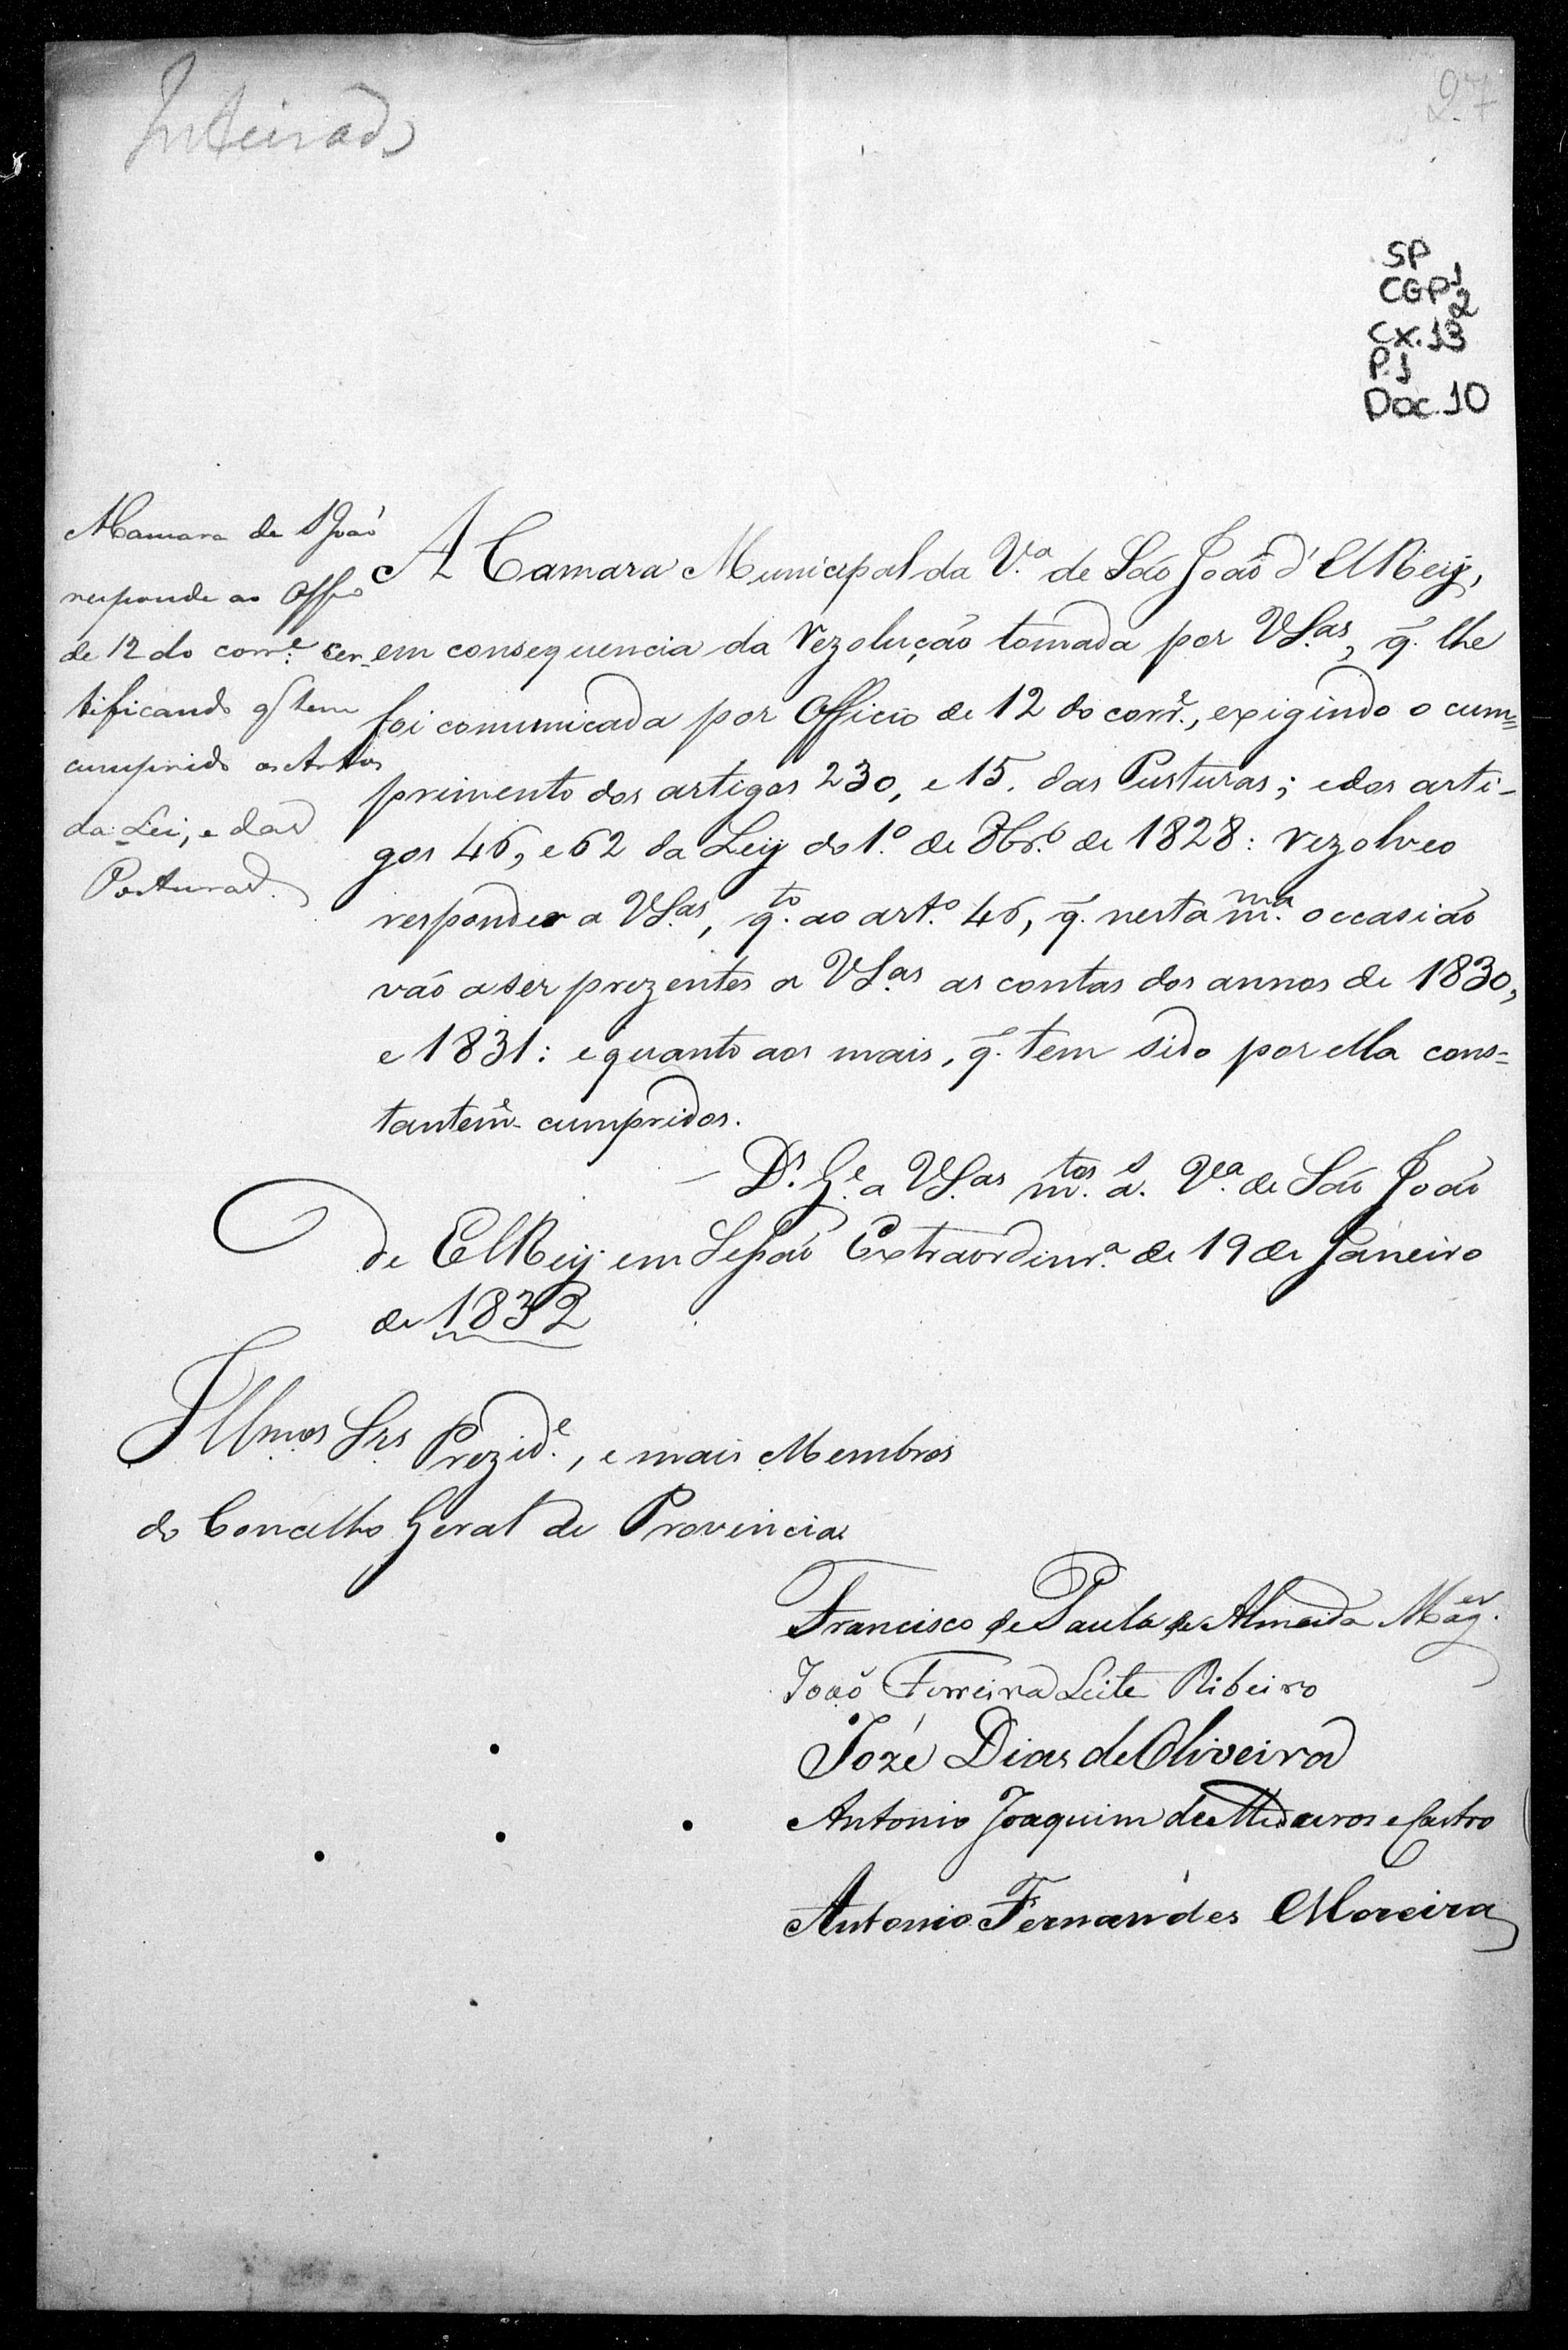 Inteirado
27
SP
CGP1
2
Cx. 13
P. 1
Doc. 10
A Camara de S João
responde ao Offo
de 12 do corre. cer-
tificando q tem
cumprido os Artos
da Lei, e das
Posturas.
A Camara Municipal da V.a de São João d'El Rey,
em consequencia da rezolução tomada por VS.as, q. lhe
foi comunicada por Officio de 12 do corre., exigindo o cum=
primento dos artigos 230, e 15. das Posturas; e dos arti-
gos 46, e 62 da Ley do 1.º de 8br.o de 1828: rezolveo
responder a VS.as, q.to ao art.o 46, q. nesta m.ma occasião
vão a ser prezentes a VS.as as contas dos annos de 1830,
e 1831: e quanto aos mais, q. tem sido por ella cons=
tantem.e cumpridos.
D.s G.e a VS.as m.tos a.s V.a de São João
de El Rey em Sessão Extraordinr.a de 19 de Janeiro
de 1832
Illmos Srs Prezid.e, e mais Membros
do Concelho Geral de Provincia
Francisco de Paula de Almeida Mag.es
João Ferreira Leite Ribeiro
José Dias de Oliveira
Antonio Joaquim de Medeiros e Castro
Antonio Fernandes Moreira